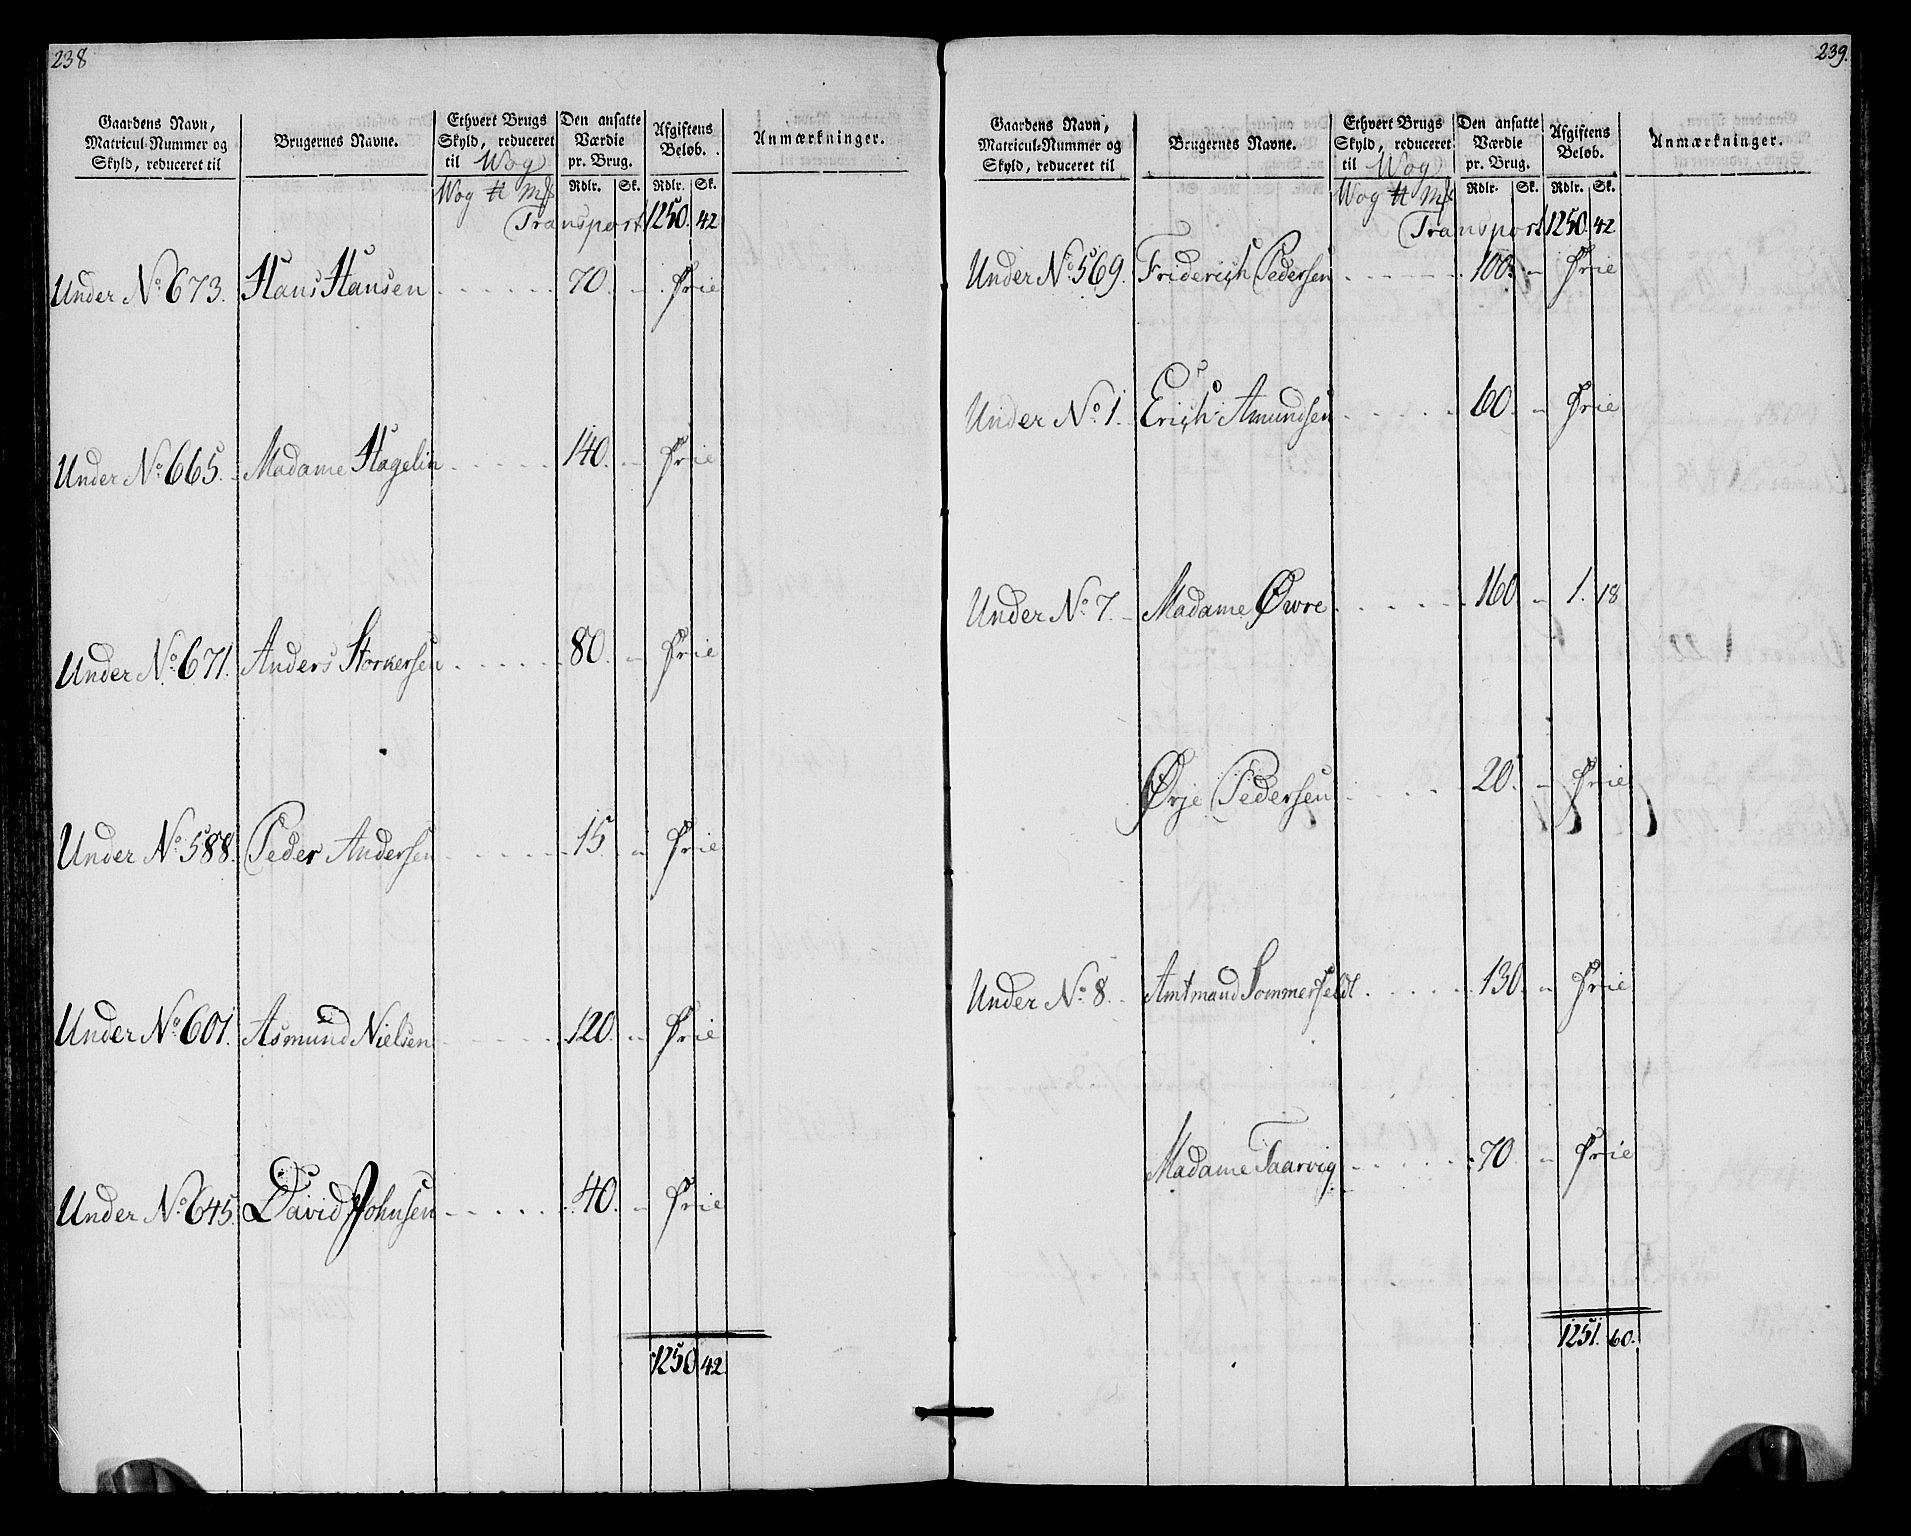 238
Gaardens Navn, Matricul-Nummer og Skyld, reduceret til
Brugernes Navne.
Ethvert Brugs Skyld, reduceret til Wog
Den ansatte Værdie pr. Brug.
Afgiftens Beløb.
Anmærkninger.
Wog ℔ Mk Rdlr. Sk. Rdlr. Sk.
Transport 1250. 42
Under No. 673. Hans Hansen 70. „ Frie
Under No. 665. Madame Hagelin 140. „ Frie
Under No. 671. Anders Storkersen 80. „ Frie
Under No. 588. Peder Andersen 15. „ Frie
Under No. 601. Asmund Nielsen 120. „ Frie
Under No. 645. David Johnsen 40. „ Frie
1250 42
239.
Gaardens Navn, Matricul-Nummer og Skyld, reduceret til
Brugernes Navne.
Ethvert Brugs Skyld, reduceret til Wog
Den ansatte Værdie pr. Brug.
Afgiftens Beløb.
Anmærkninger.
Wog ℔ Mk Rdlr. Sk. Rdlr. Sk.
Transport 1250. 42
Under No. 569. Friderich Pedersen 100. „ Frie
Under No. 1. Erich Amundsen 60. „ Frie
Under No. 7. Madame Øvre 160 „ 1. 18
Ørje Pedersen 20. „ Frie
Under No. 8. Amtmand Sommerfeldt 130. „ Frie
Madame Taarvig 70. „ Frie
1251. 60.